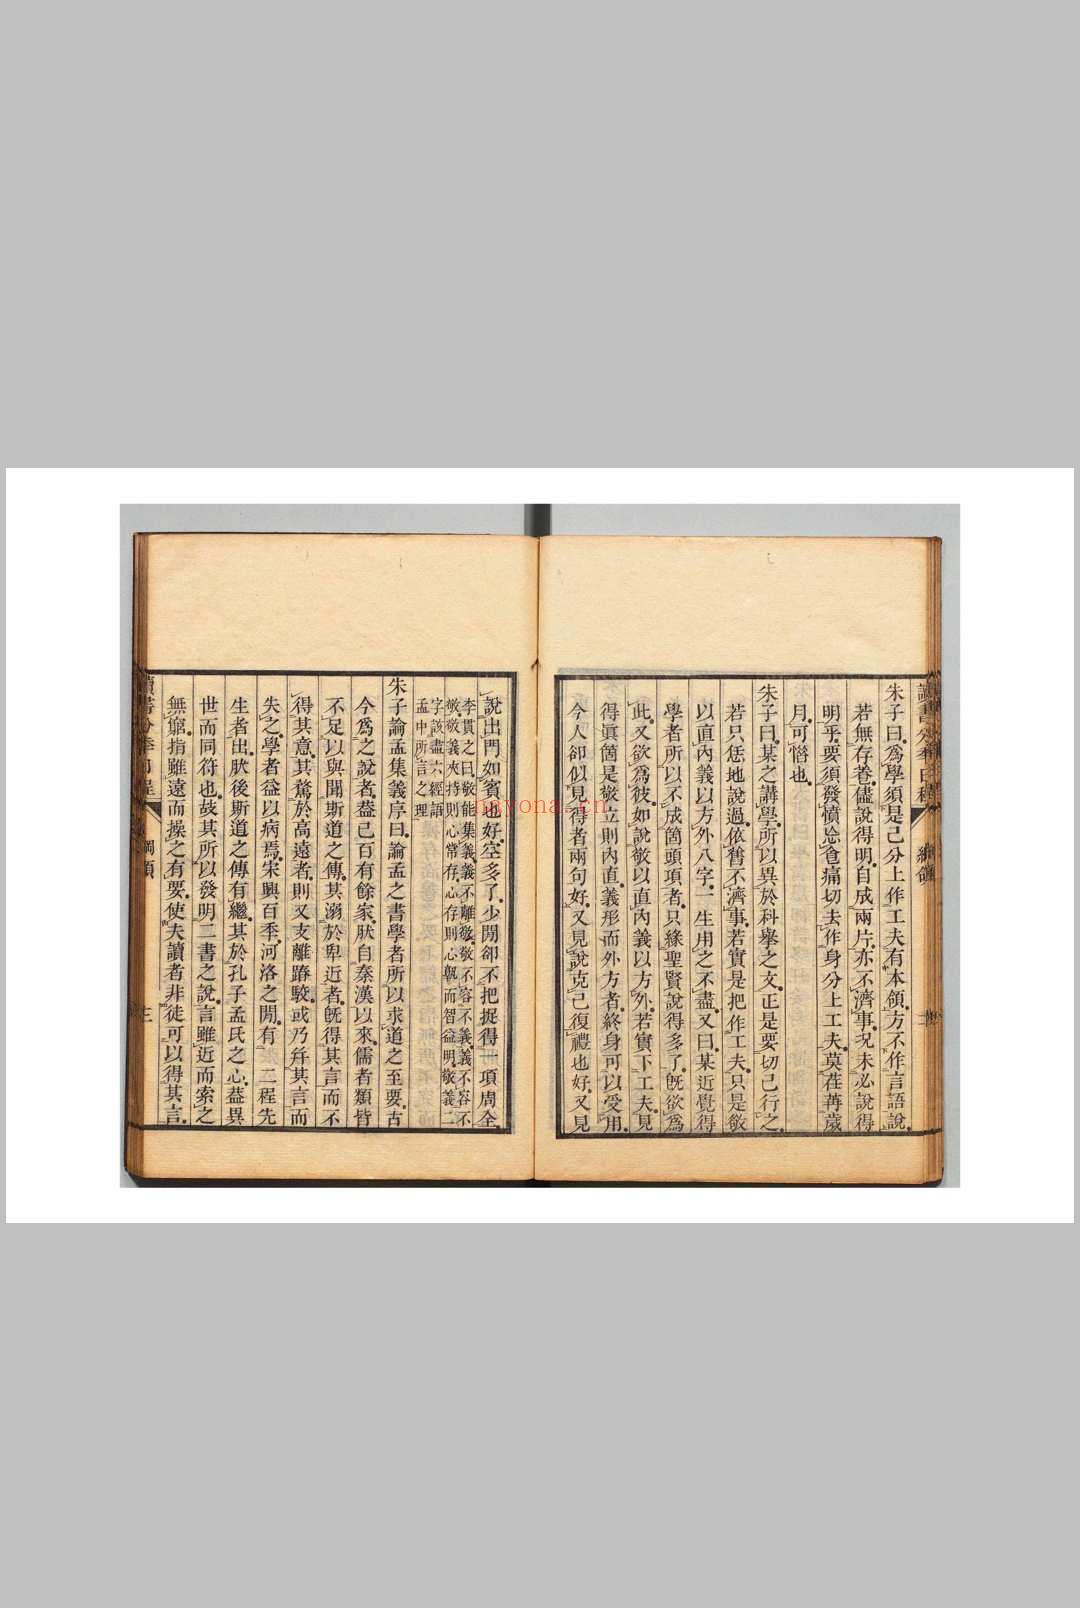 讀書分秊日程
綱領
朱子曰爲學須是己分上作工夫有本領方不作言語說
若無存養儘說得明自成兩片亦不濟事況未必說得
明乎要須發憤忘食痛切去作身分上工夫莫荏苒歲
月可惜也
朱子曰某之講學所以異於科舉之文正是要切己行之
若只恁地說過依舊不濟事若實是把作工夫只是敬
以直內義以方外八字一生用之不盡又曰某近覺得
學者所以不成箇頭項者只緣聖賢說得多了旣欲爲
此又欲爲彼如說敬以直內義以方外若實下工夫見
得眞箇是敬立則內直義形而外方者終身可以受用
今人卻似見得者兩句好又見說克己復禮也好又見
說出門如賓也好空多了少閒卻不把捉得一項周全
李貫之曰敬能集義義不離敬敬不容不義義不容不
敬敬義夾持則心常存心存則心朝而智益明敬義二
字該盡六經語
孟中所言之理
朱子論孟集義序曰論孟之書學者所以求道之至要古
今爲之說者葢已百有餘家肰自秦漢以來儒者類皆
不足以與聞斯道之傳其溺於卑近者旣得其言而不
得其意其騖於高遠者則又支離踳駮或乃幷其言而
失之學者益以病焉宋興百秊河洛之閒有二程先
生者出肰後斯道之傳有繼其於孔子孟氏之心葢異
世而同符也故其所以發明二書之說言雖近而索之
無窮指雖遠而操之有要使夫讀者非徒可以得其言
讀書分秊日程
綱領